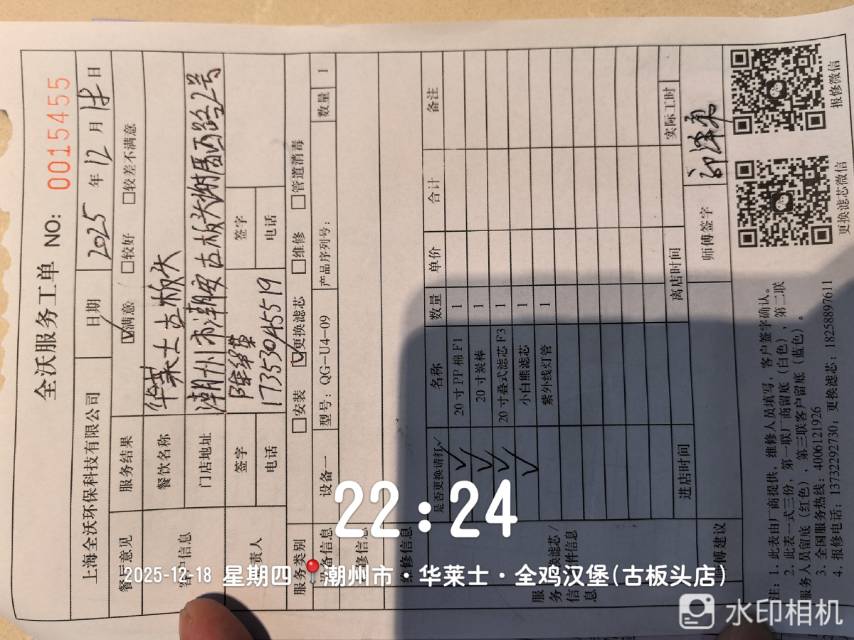 全沃服务工单 NO: 0015455
上海全沃环保科技有限公司 日期 2025 年 12 月 日
服务结果 ☑满意 □较好 □较差不满意
餐饮名称 华莱士古板头
门店地址 潮州市潮安古板头 西路2号
签字 签字
电话 17353045519 电话
服务类别 □安装 ☑更换滤芯 □维修 □管道消毒
设备一 型号: QG-U4-09 产品序列号: 数量 1
是否更换请打√ 名称 数量 单价 合计 备注
√ 20寸PP棉F1 1
√ 20寸炭棒 1
√ 20寸叠式滤芯F3 1
√ 小白熊滤芯 1
紫外线灯管 1
进店时间 离店时间 实际工时
师傅签字
注: 1、此表由厂商提供, 维修人员填写, 客户签字确认。
2、此表一式三份, 第一联厂商留底(白色), 第二联
服务人员留底(红色), 第三联客户留底(蓝色)。
3、全国服务热线: 4006121926
4、报修电话: 13732292730; 更换滤芯: 18258897611
更换滤芯微信 报修微信
22:24
2025-12-18 星期四 潮州市·华莱士·全鸡汉堡(古板头店)
水印相机